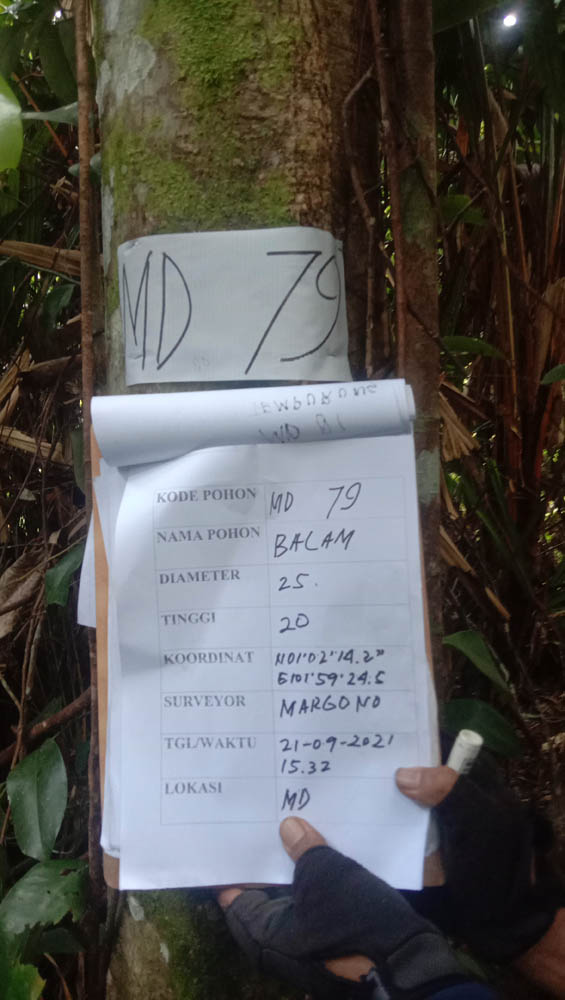 MD 79
KODE POHON MD 79
NAMA POHON BALAM
DIAMETER 25.
TINGGI 20
KOORDINAT N01'02'14.2"
E101'59'24.5
SURVEYOR MARGONO
TGL/WAKTU 21-09-2021
15.32
LOKASI MD